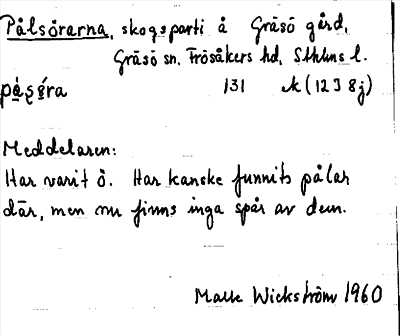 Pålsörarna, skogsparti å Gräsö gård,
Gräsö sn, Frösåkers hd, Sthlms l.
131 k (12 J 8j)
Meddelaren:
Har varit ö. Har kanske funnits pålar
där, men nu finns inga spår av dem.
Malte Wickström 1960